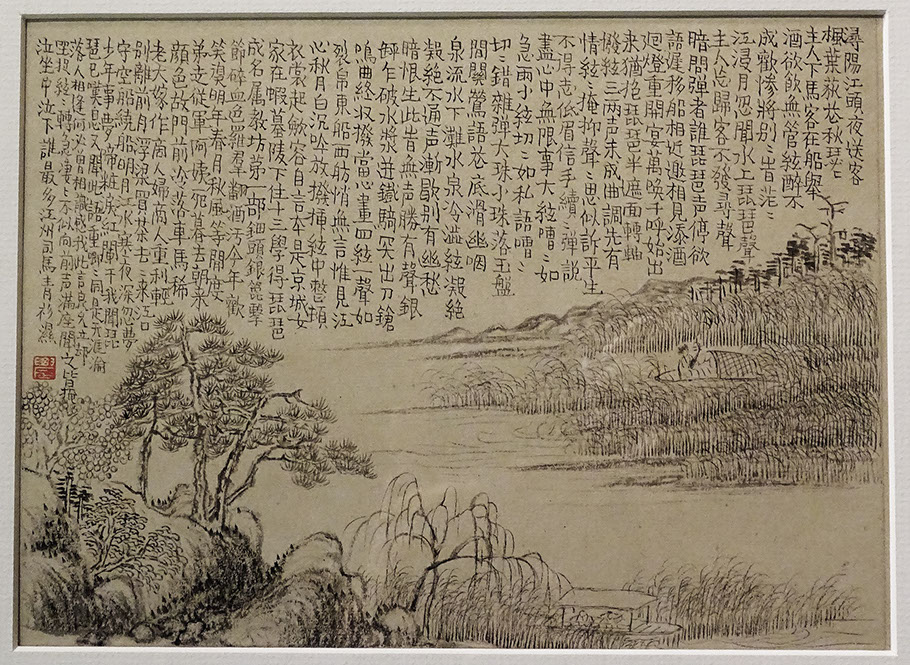 潯陽江頭夜送客
楓葉荻花秋瑟〻
主人下馬客在船舉
酒欲飲無管絃醉不
成歡慘將別〻旹茫〻
江浸月忽聞水上琵琶聲
主人忘歸客不發尋聲
暗問彈者誰琵琶声停欲
語遲移船相近邀相見添酒
迴燈重開宴萬喚千呼始出
來猶抱琵琶半遮面轉軸
撥絃三兩声未成曲調先有
情絃〻掩抑聲〻思似訴平生
不得志低眉信手續〻彈説
盡心中無限事大絃嘈〻如
急雨小絃切〻如私語嘈〻
切〻錯雜彈大珠小珠落玉盤
間關鶯語花底滑幽咽
泉流水下灘水泉冷澁絃凝絶
凝絶不通声漸歇別有幽愁
暗恨生此旹無声勝有聲銀
缾乍破水漿迸鐵騎突出刀鎗
鳴曲終收撥當心畫四絃一聲如
裂帛東船西舫悄無言惟見江
心秋月白沉吟放撥插絃中整頓
衣裳起歛容自言本是京城女
家在蝦蟇陵下住十三學得琵琶
成名屬教坊第一部鈿頭銀篦擊
節碎血色羅羣翻酒汚今年歡
笑明年春月秋風等閒度
弟走從軍阿姨死暮去朝來
顔色故門前冷落車馬稀
老大嫁作商人婦商人重利輕
別離前月浮梁買茶去〻來江口
守空船繞船明月江水寒夜深忽夢
少年事夢啼粧淚紅闌干我聞琵
琶已嘆息又聞此語重唧〻同是天涯淪
落人相逢何必曾相識感我此言良久立却
坐促絃〻轉急凄〻不似向前声滿座聞之皆掩
泣坐中泣下誰最多江州司馬青衫濕